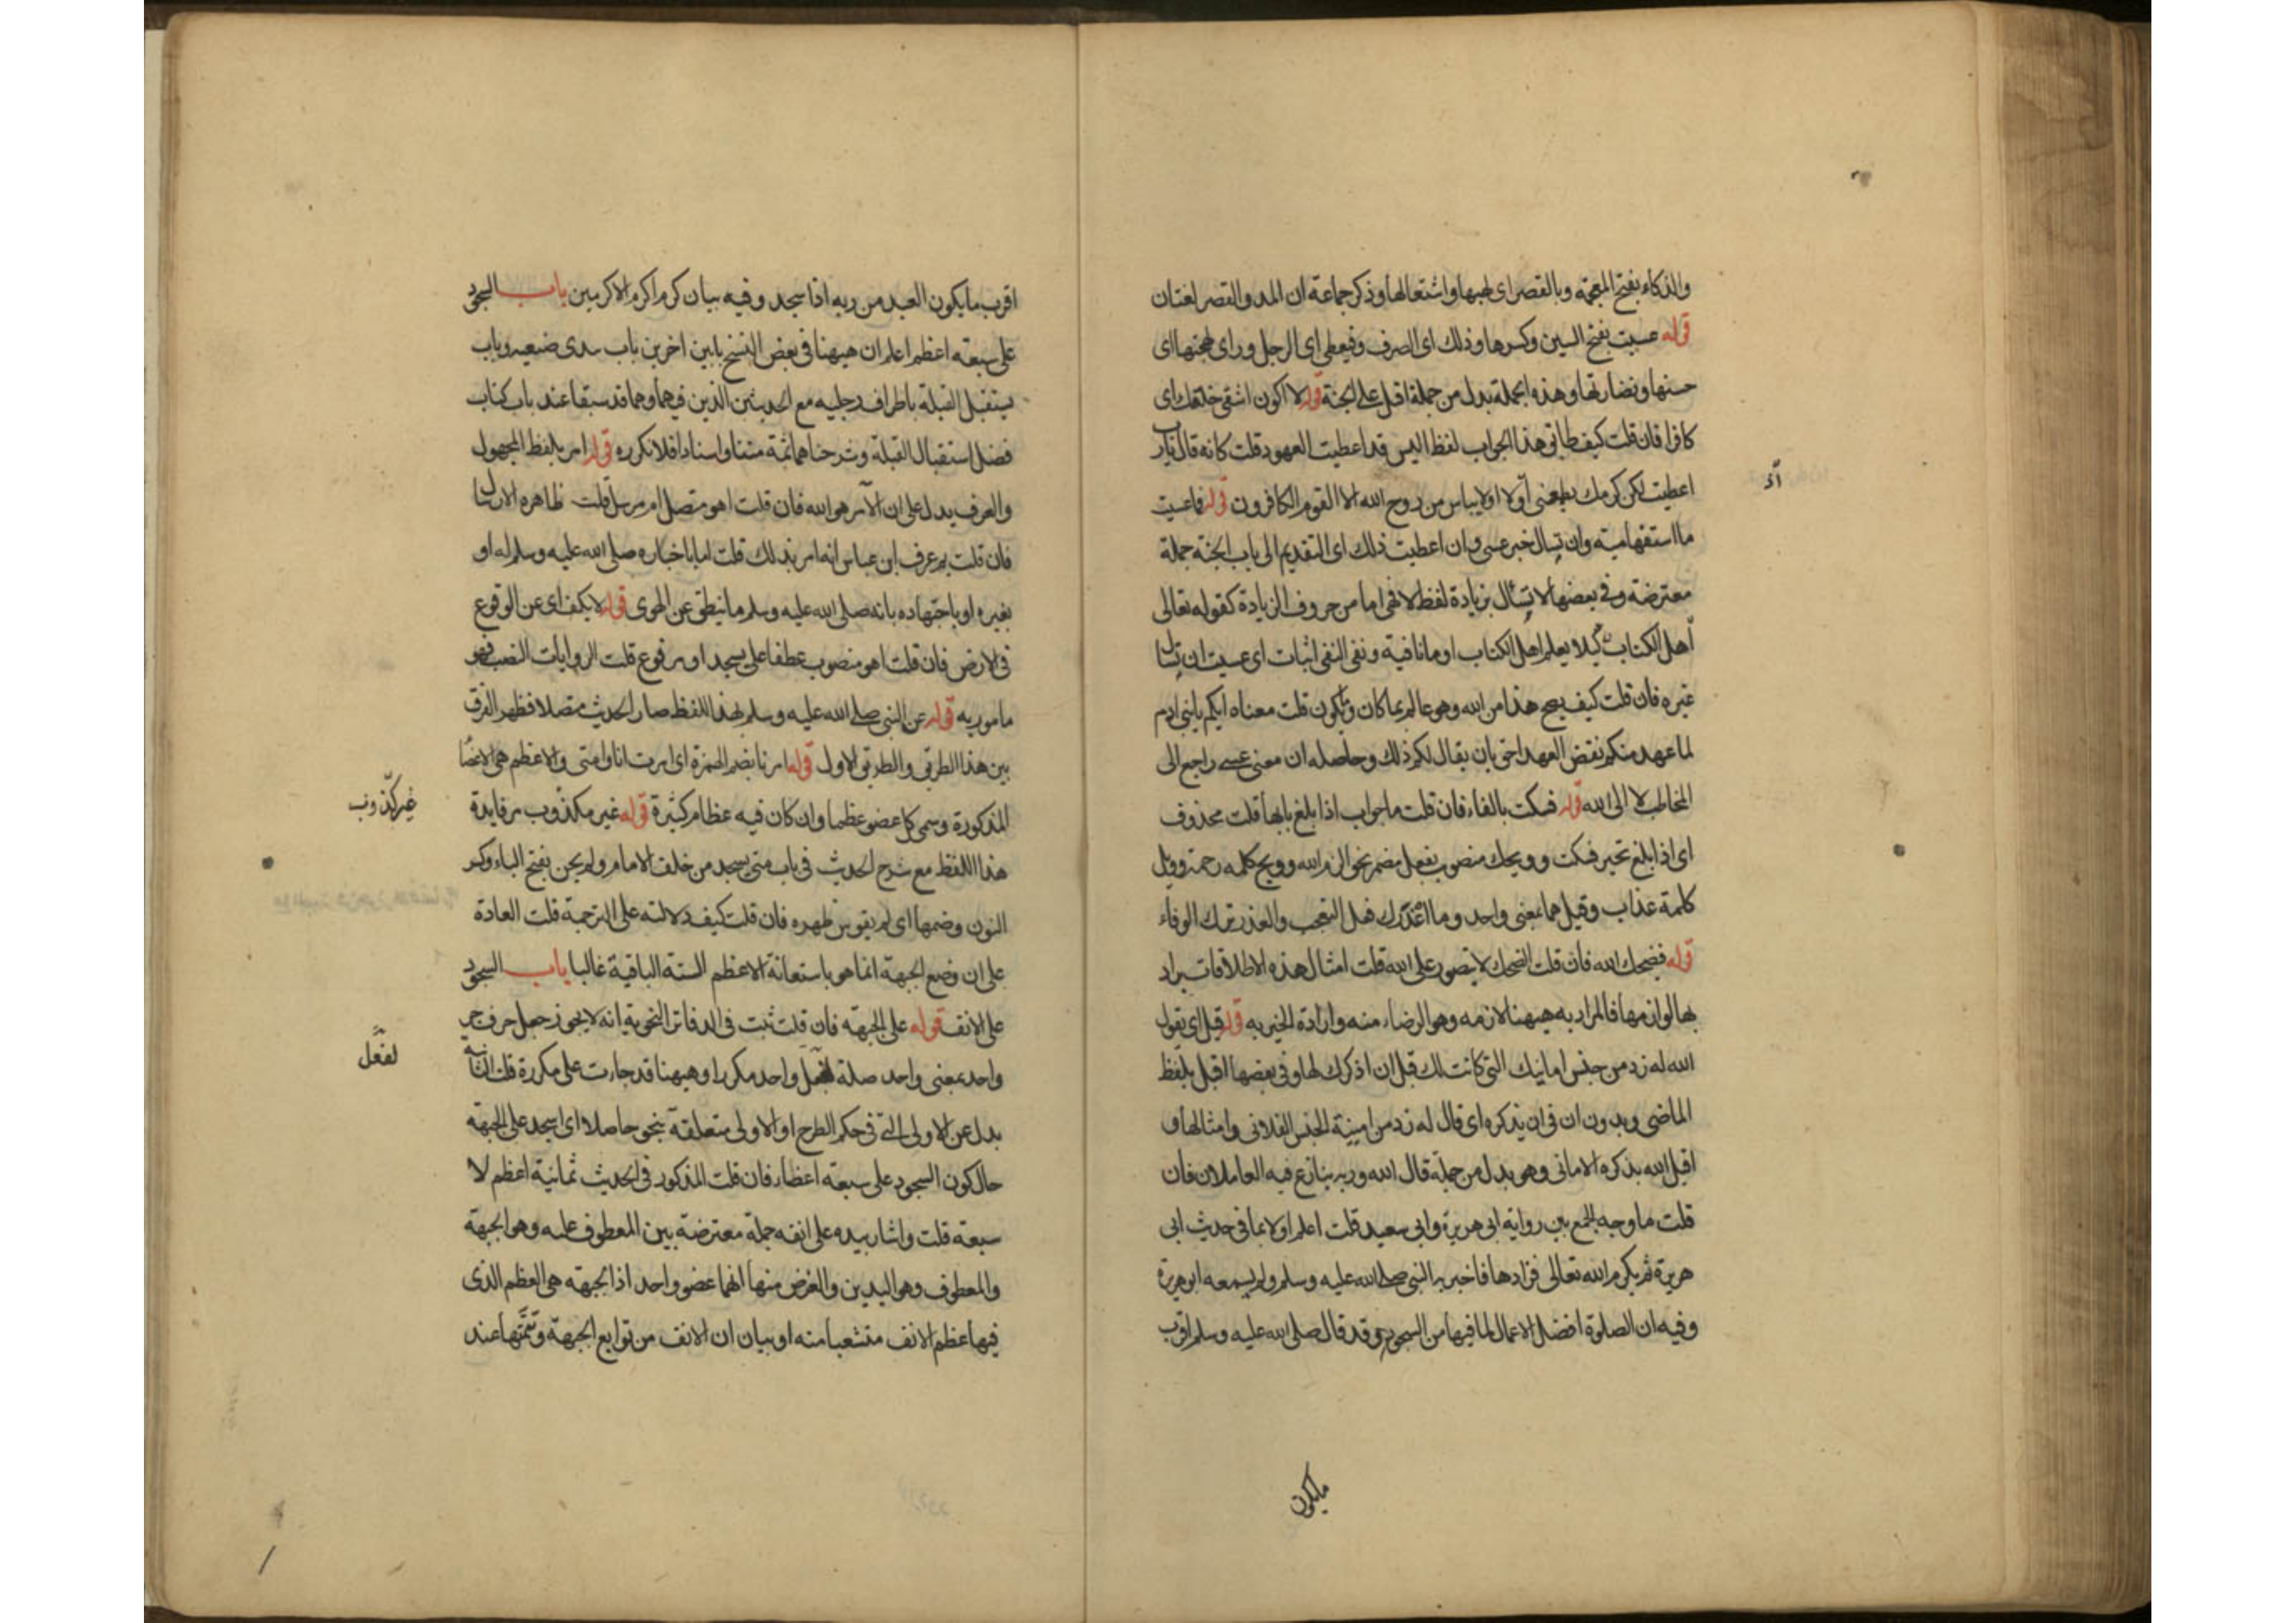 والذكاء بفتح المعجمة وبالقصر اى لهبها واشتعالها وذكر جماعة ان المد والقصر لغتان
قوله عسيت بفتح السين وكسرها وذلك اى الصرف وفيعطى اى الرجل وراى بهجتها اى
حسنها ونضارتها وهذه الجملة بدل من جملة اقبل على الجنة قوله لا اكون اشقى خلقك اى
كافرا فان قلت كيف طابق هذا الجواب لفظ اليس قد اعطيت العهود قلت كانه قال يارب
اعطيت لكن كرمك يطمعنى اولا اولايياس من روح الله الا القوم الكافرون قوله فما عسيت
ما استفهامية وان تسال خبر عسى وان اعطيت ذلك اى التقديم الى باب الجنة جملة
معترضة وفى بعضها لا تسأل بزيادة لفظ لا فهى اما من حروف الزيادة كقوله تعالى
لئلا يعلم اهل الكتاب او ما نافية ونفى النفى اثبات اى عسيت ان تسال
غيره فان قلت كيف يصح هذا من الله وهو عالم بما كان وتكون قلت معناه انكم يابنى ادم
لما عهد منكم نقض العهد احق بان يقال لكم ذلك وحاصله ان معنى عسى راجع الى
المخاطب لا الى الله قوله فسكت بالفاء فان قلت ما جواب اذا بلغ بابها قلت محذوف
اى اذا بلغ تحير فسكت وويحك منصوب بفعل مضمر نحو الزم الله وويح كلمة رحمة وويل
كلمة عذاب وقيل هما بمعنى واحد وما اغدرك فعل التعجب والغدر ترك الوفاء
قوله فضحك الله فان قلت الضحك لا يتصور على الله قلت امثال هذه الاطلاقات يراد
بها لوازمها فالمراد به هيهنا لازمه وهو الرضاء منه وارادة الخير به قوله قبل اى يقول
الله له زد من جنس امانيك التى كانت لك قبل ان اذكرك لها وفى بعضها اقبل بلفظ
الماضى وبدون ان فى ان يذكره اى قال له زد من امنية الجنس الفلانى وامثالها و
اقبل الله بذكره الامانى وهو بدل من جملة قال الله وربه بنازع فيه العاملان فان
قلت ما وجه الجمع بين رواية ابى هريرة وابى سعيد قلت اعلم اولا بما فى حديث ابى
هريرة ثم تكرم الله تعالى فزادها فاخبر به النبى صلى الله عليه وسلم ولم يسمعه ابو هريرة
وفيه ان الصلوة افضل الاعمال لما فيها من السجود وقد قال صلى الله عليه وسلم اقرب
مايكون
اقرب مايكون العبد من ربه اذا سجد وفيه بيان كرم اكرم الاكرمين باب السجود
على سبعة اعظم اعلم ان هيهنا فى بعض النسخ بابين اخرين باب يبدى ضبعيه وباب
يستقبل القبلة باطراف رجليه مع الحديثين الذين فيهما وهما قد سبقا عند باب كتاب
فضل استقبال القبلة وشرحناهما ثمة متنا واسنادا فلا نكرره قوله امر بلفظ المجهول
والعرف يدل على ان الآمر هو الله فان قلت اهو متصل ام مرسل قلت ظاهره الارسال
فان قلت بم عرف ابن عباس انه امر بذلك قلت اما باخباره صلى الله عليه وسلم له او
بغيره او باجتهاده بانه صلى الله عليه وسلم ما ينطق عن الهوى قوله لا يكف اى عن الوقوع
فى الارض فان قلت اهو منصوب عطفا على يسجد او مرفوع قلت الروايات النصب فهو
مامور به قوله عن النبى صلى الله عليه وسلم بهذا اللفظ صار الحديث متصلا فظهر الفرق
بين هذا الطريق والطريق الاول قوله امرنا بضم الهمزة اى امرت انا وامتى والاعظم هى الاعضا
المذكورة وسمى كل عضو عظما وان كان فيه عظام كثيرة قوله غير مكذوب مر فايدة
غير كذوب
هذا اللفظ مع شرح الحديث فى باب متى يسجد من خلف الامام ولم يحن بفتح الياء وكسر
النون وضمها اى لم يقوس ظهره فان قلت كيف دلالته على الترجمة قلت العادة
على ان وضع الجبهة انما هو باستعانة الاعظم الستة الباقية غالبا باب السجود
على الانف قوله على الجبهة فان قلت ثبت فى الدفاتر النحوية انه لا يجوز جعل حرف جر
لفعل
واحد بمعنى واحد صلة لفعل واحد مكررا وهيهنا قد جاءت على مكررة قلت الثانية
بدل عن الاولى التى فى حكم الطرح او الاولى متعلقة بنحو حاصلا اى اسجد على الجبهة
حال كون السجود على سبعة اعظاء فان قلت المذكور فى الحديث ثمانية اعظم لا
سبعة قلت واشار بيده على انفه جملة معترضة بين المعطوف عليه وهو الجبهة
والمعطوف وهو اليدين والغرض منها انهما عضو واحد اذ الجبهة هى العظم الذى
فيها عظم الانف متشعبا منه او بيان ان الانف من توابع الجبهة وتتمتها عند